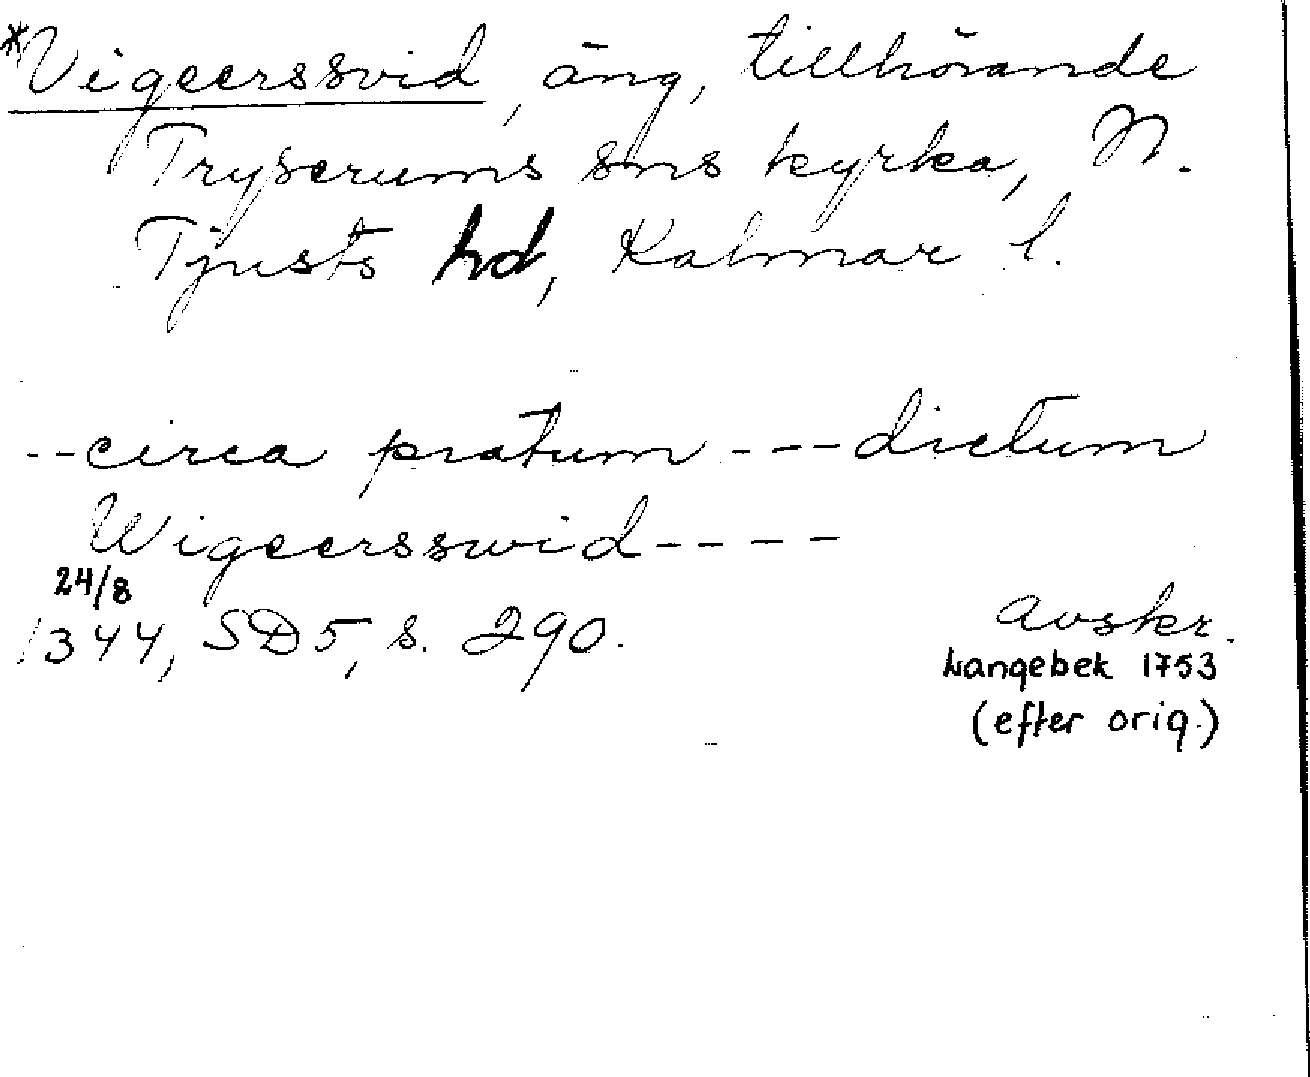 *Vigeerssvid, äng, tillhörande
Tryserums sns kyrka, N.
Tjusts hd, Kalmar l.
--circa pratum ---dictum
Wigeersswid----
24/8
1344, SD5, s. 290.
Avskr.
Langebek 1753
(efter orig.)